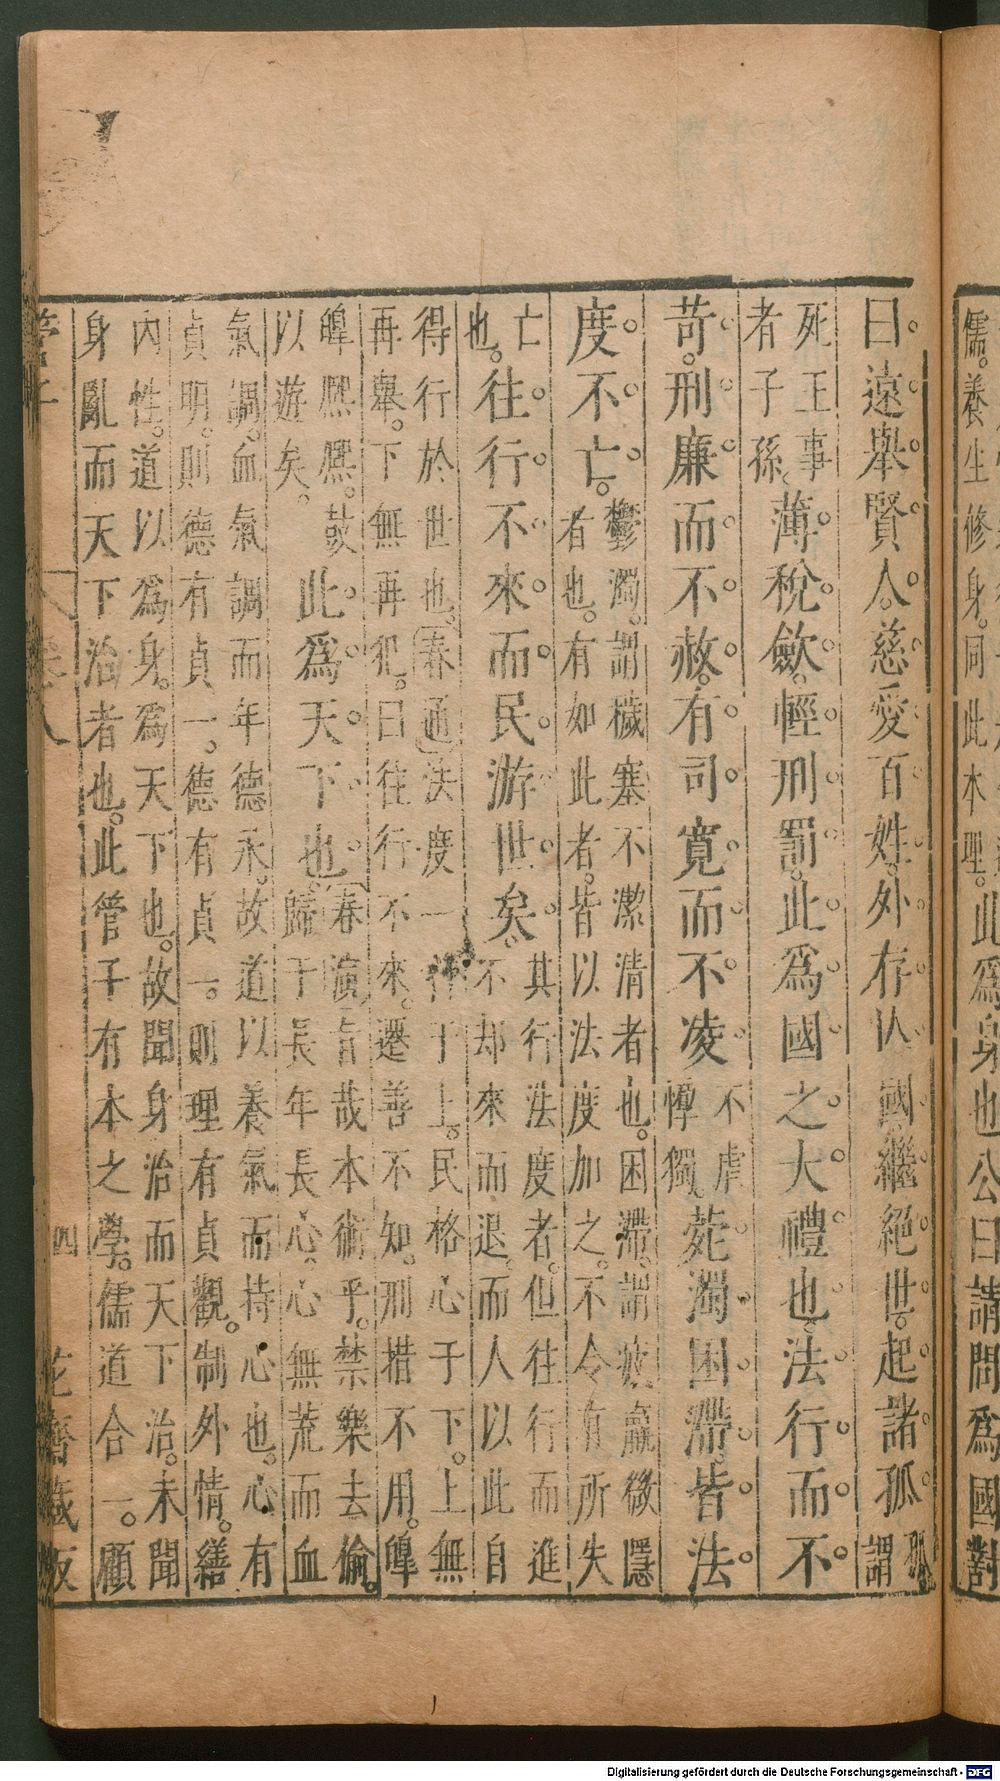 儒養生修身同此本理此爲身也公曰請問爲國對
曰遠舉賢人慈愛百姓外存亾國繼絕世起諸孤謂孤
死王事
者子孫薄稅歛輕刑罰此爲國之大禮也法行而不
苛刑廉而不赦有司寬而不凌不虐
惸獨菀濁困滯皆法
度不亡鬱濁謂穢塞不潔清者也困滯謂疲羸後隱
者也有如此者皆以法度加之不令有所失
亡
也往行不來而民游世矣其行法度者但往行而進
不却來而退而人以此自
得行於世也春通法度一神于上民格心于下上無
再舉下無再犯曰往行不來遷善不知刑措不用皥
皥熈熈鼓
以遊矣此爲天下也春演旨哉本術乎禁樂去偷
歸于長年長心心無荒而血
氣調血氣調而年德永故道以養氣而持心也心有
貞明則德有貞一德有貞一則理有貞觀制外情繕
內性道以爲身爲天下也故聞身治而天下治未聞
身亂而天下治者也此管子有本之學儒道合一顧
管子
卷八
四
花齋藏板
Digitalisierung gefördert durch die Deutsche Forschungsgemeinschaft - DFG